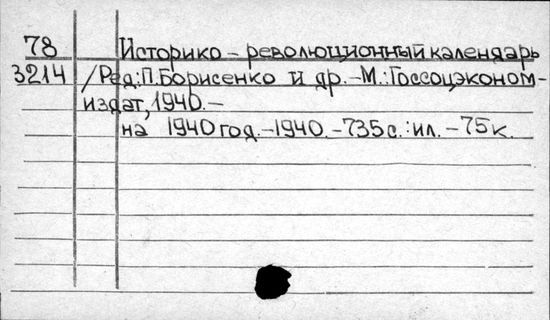 78 Историко - революционный календарь
3214 /Ред.: П. Борисенко и др. - М.: Госсоцэконом-
издат, 1940. -
на 1940 год. - 1940. - 735 с. : ил. - 75 к.